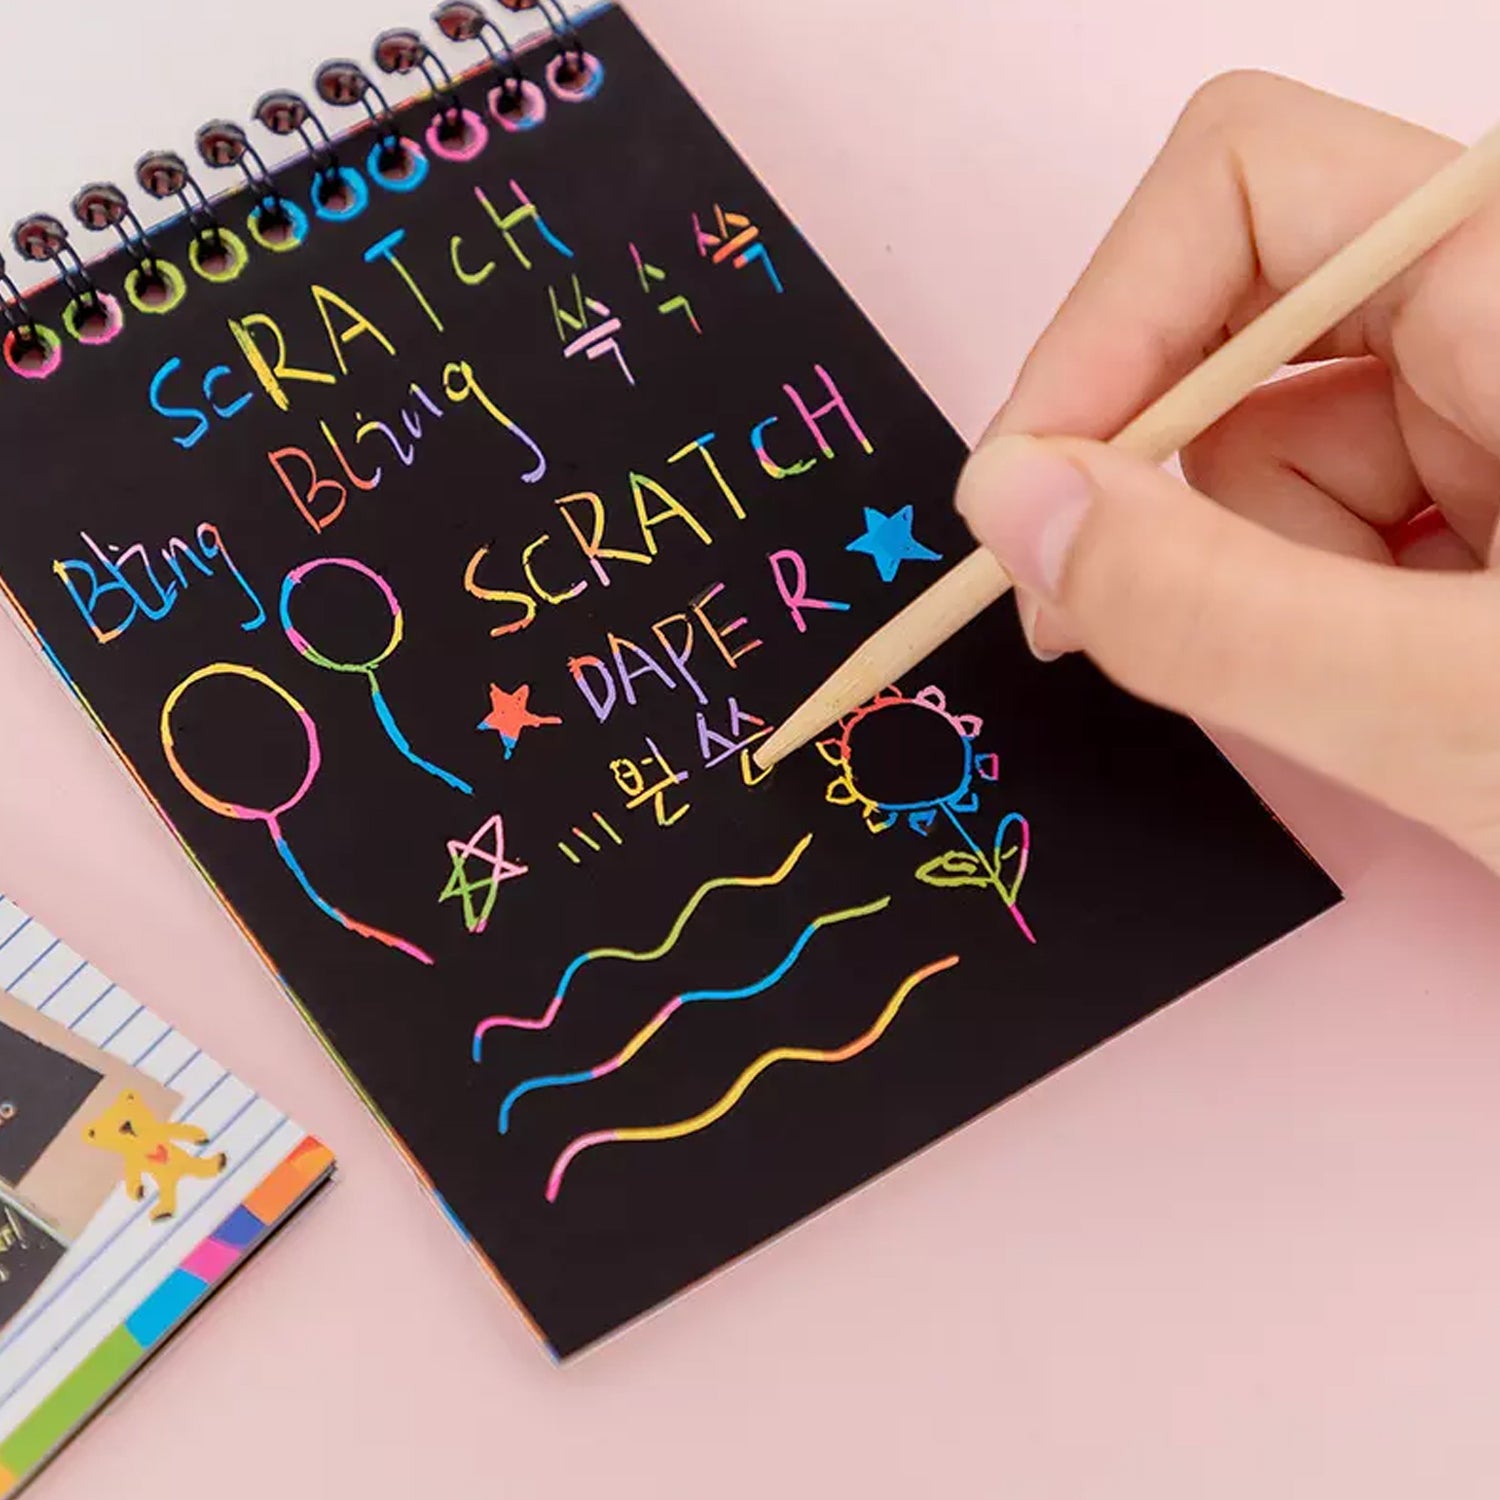 SCRATCH
쓱 슥 쓱
Bling
Bling
SCRATCH
DAPER